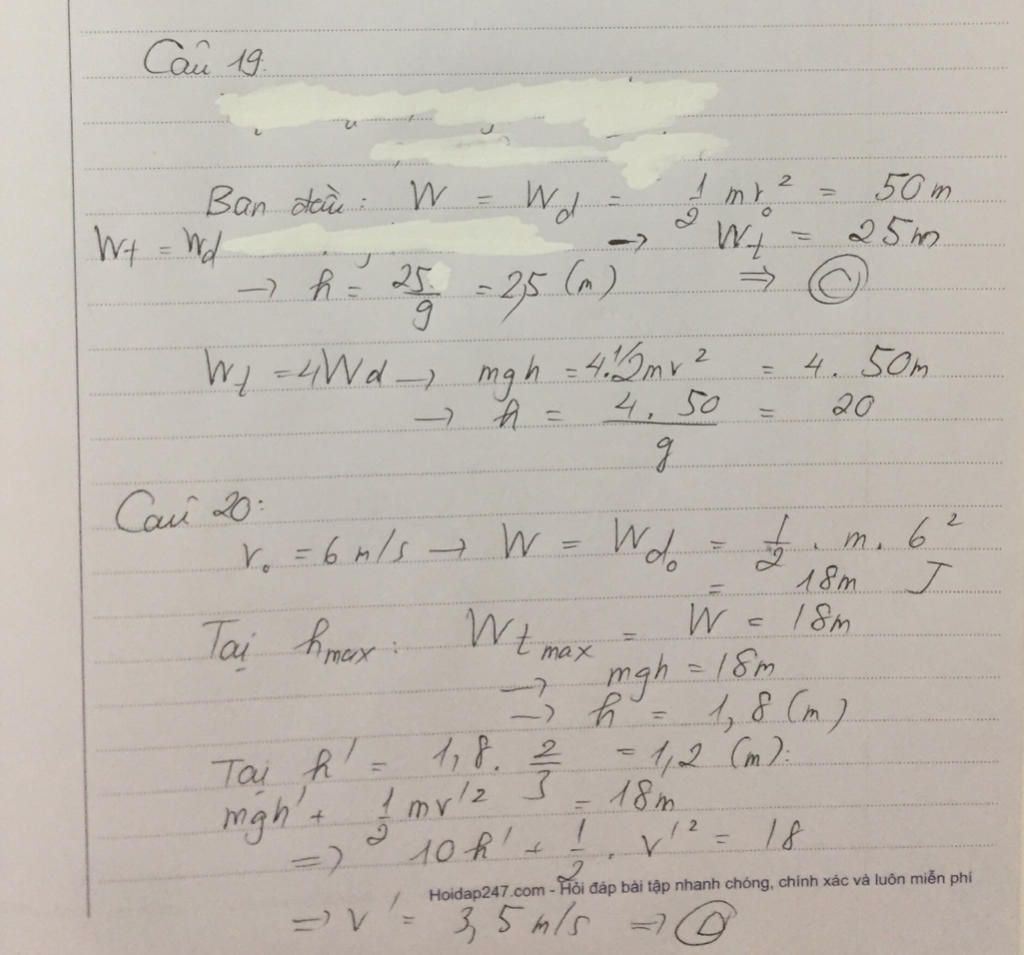 Câu 19.
Ban đầu: W = Wđ = 1/2 mv₀² = 50m
Wt = Wđ → Wt = 25m
→ h = 25/g = 2,5 (m) ⇒ C
Wt = 4Wđ → mgh = 4.1/2mv² = 4. 50m
→ h = 4. 50/g = 20
Câu 20:
v₀ = 6 m/s → W = Wđ₀ = 1/2 . m. 6²
= 18m J
Tại hmax: Wt max = W = 18m
→ mgh = 18m
→ h = 1,8 (m)
Tại h' = 1,8. 2/3 = 1,2 (m):
mgh' + 1/2 mv'² = 18m
=> 10h' + 1/2 . v'² = 18
Hoidap247.com - Hỏi đáp bài tập nhanh chóng, chính xác và luôn miễn phí
=> v' = 3,5 m/s => D